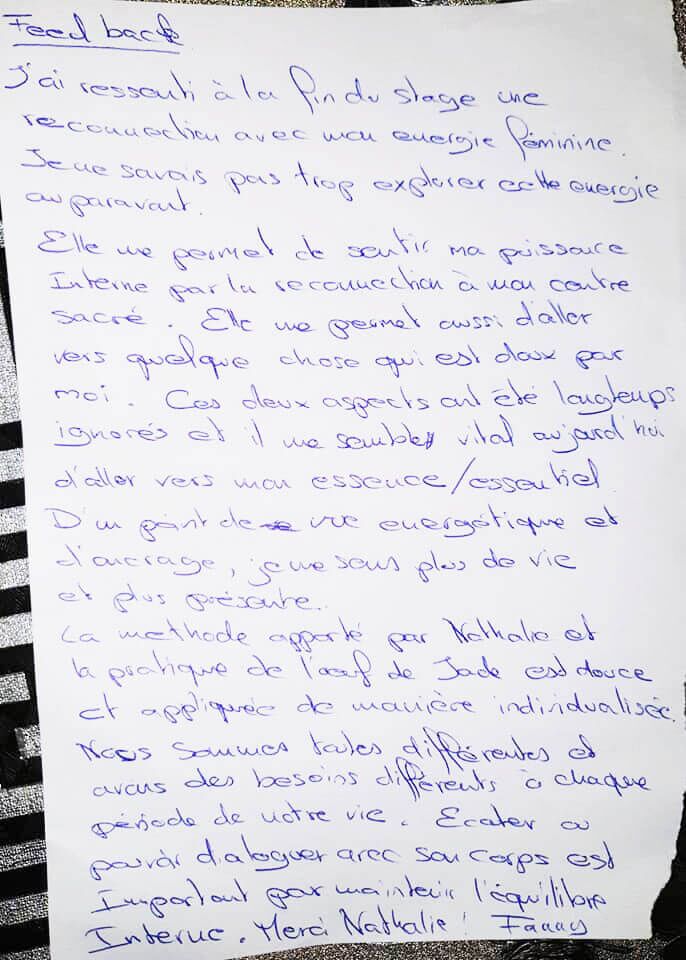 Feed back
J'ai ressenti à la fin du stage une
reconnection avec mon energie féminine.
Je ne savais pas trop explorer cette energie
auparavant.
Elle me permet de sentir ma puissance
Interne par la reconnection à mon centre
sacré. Elle me permet aussi d'aller
vers quelque chose qui est doux pour
moi. Ces deux aspects ont été longtemps
ignorés et il me semble vital aujourd'hui
d'aller vers mon essence/essentiel
D'un point de vue energétique et
d'ancrage, je me sens plus de vie
et plus présente.
La methode apporté par Nathalie et
la pratique de l'œuf de Jade est douce
et appliquée de manière individualisée.
Nous sommes toutes différentes et
avons des besoins différents à chaque
période de notre vie. Ecouter ou
pouvoir dialoguer avec son corps est
Important pour maintenir l'équilibre
Interne. Merci Nathalie! Fanny